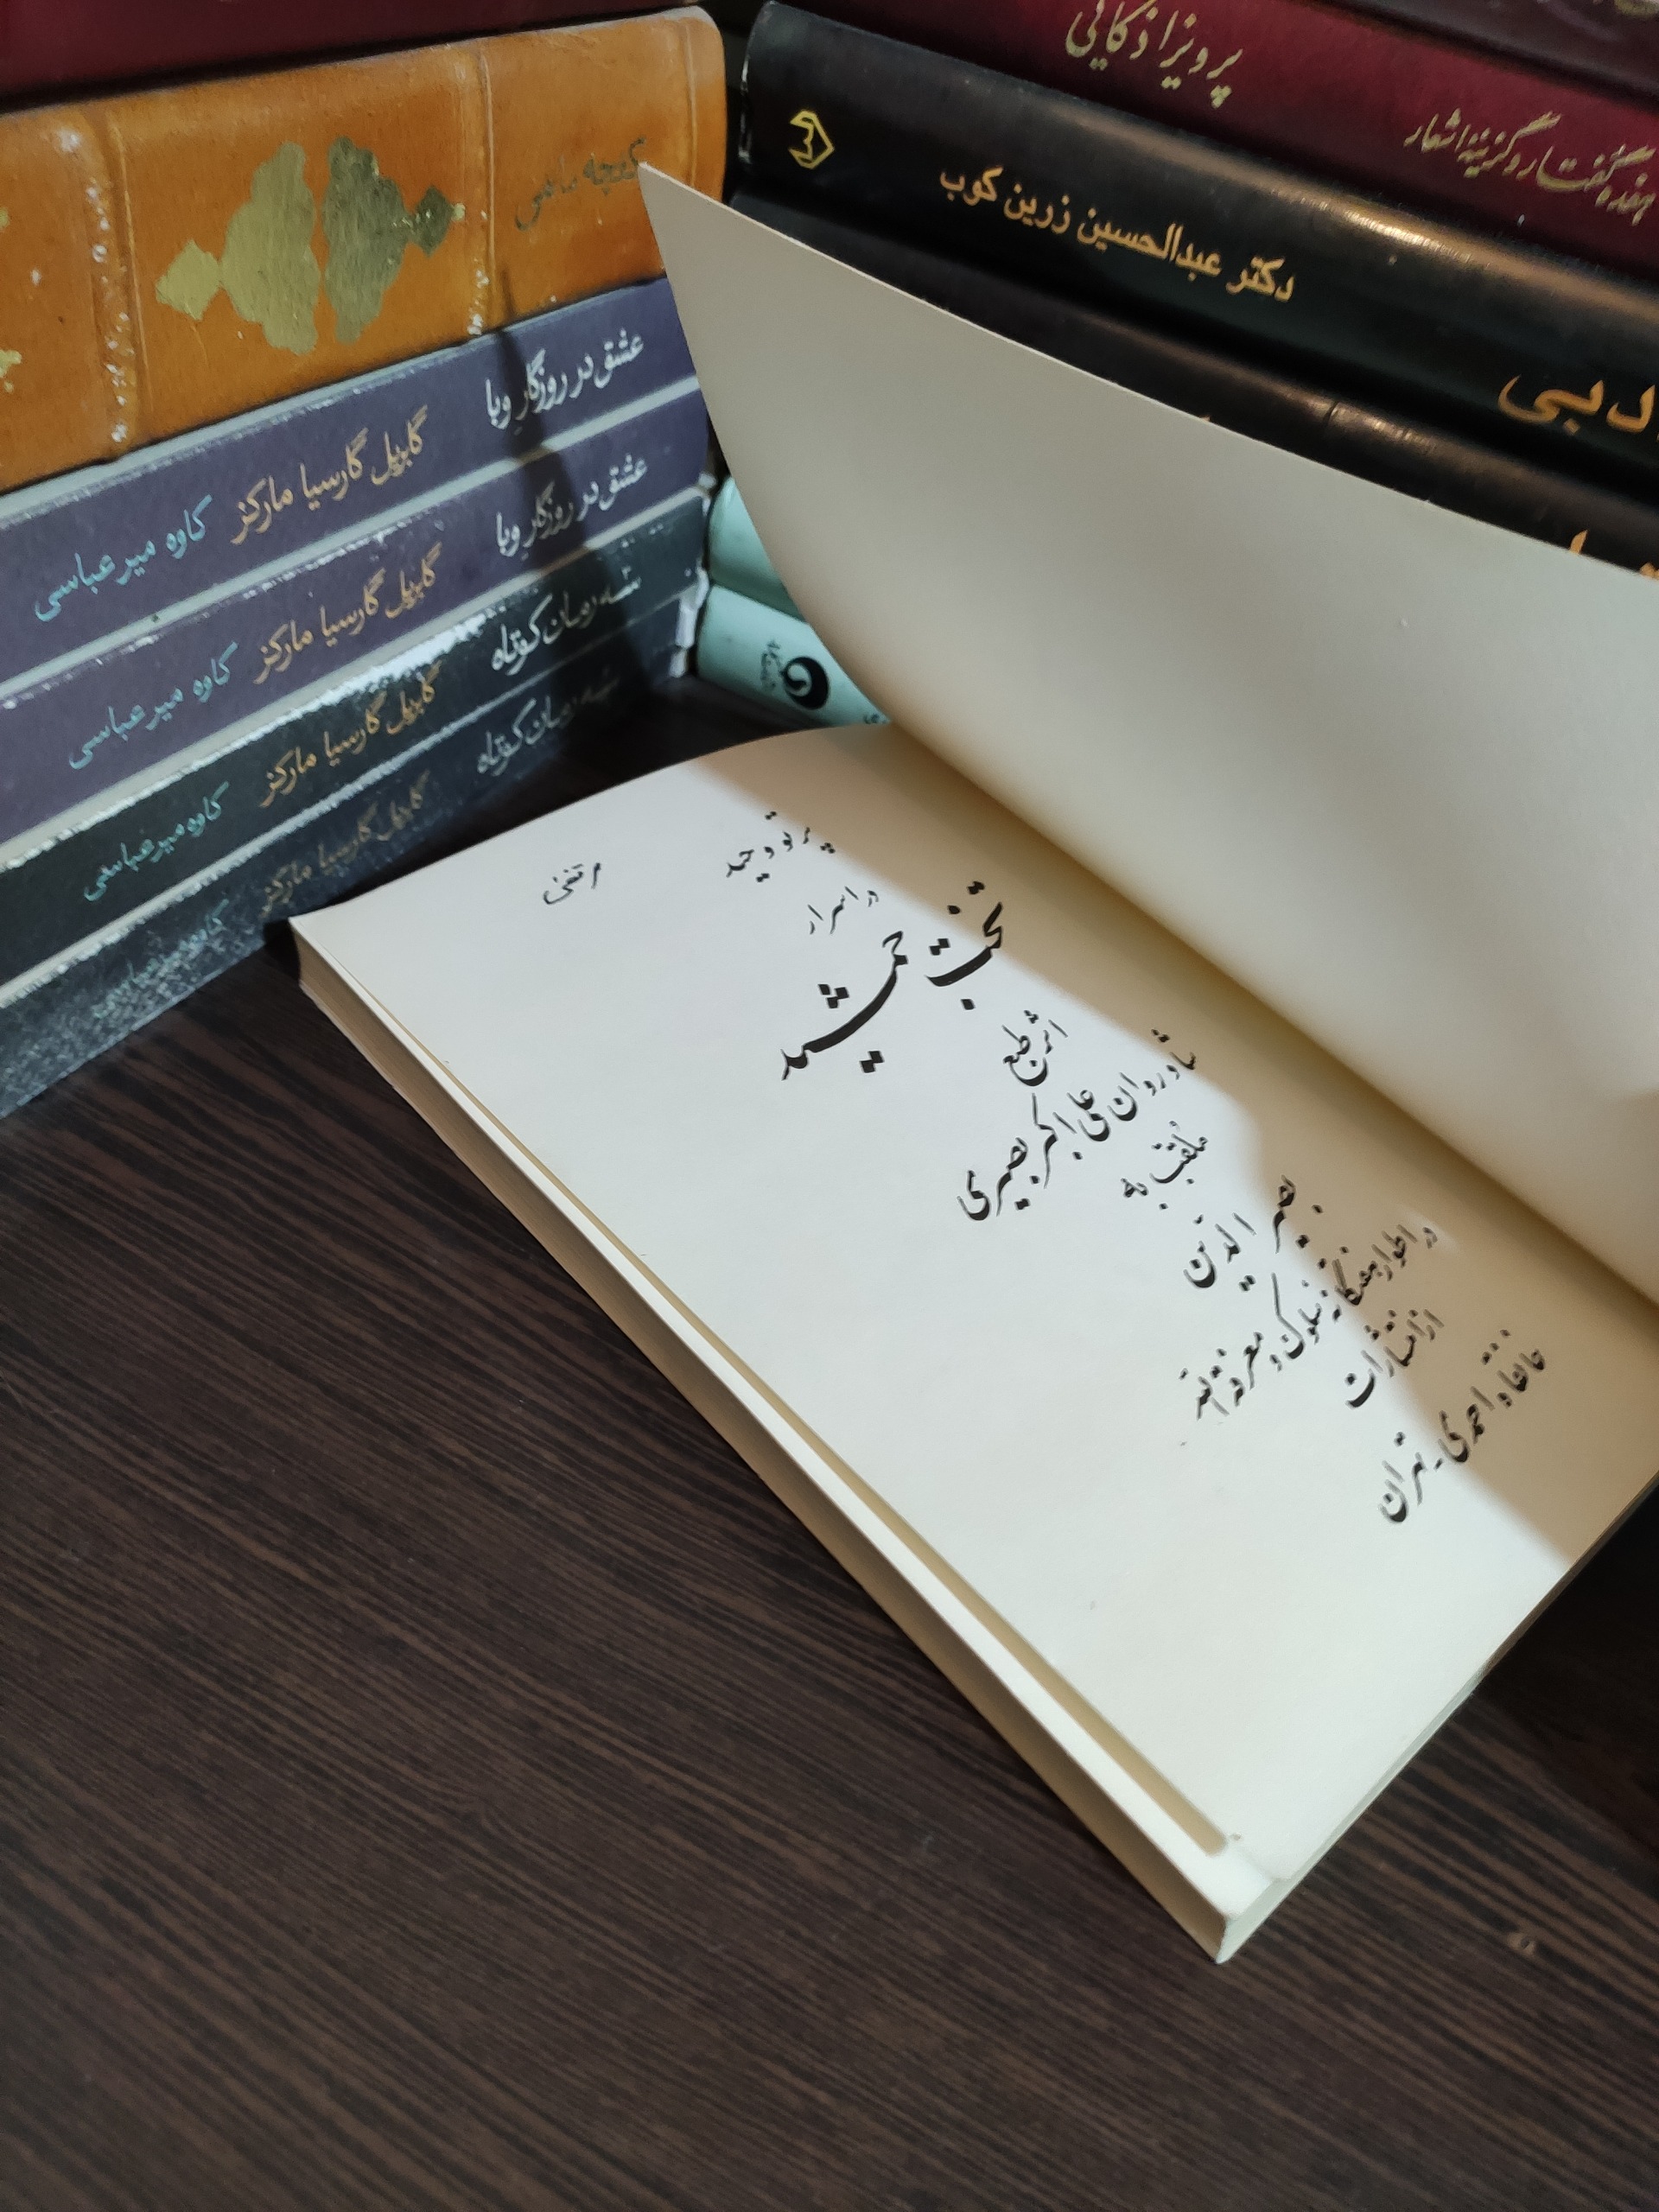 پرویز اذکائی
هفده گفتار و گزینه اشعار
دکتر عبدالحسین زرین کوب
عشق در روزگار وبا
گابریل گارسیا مارکز
کاوه میرعباسی
عشق در روزگار وبا
گابریل گارسیا مارکز
کاوه میرعباسی
سه رمان کوتاه
گابریل گارسیا مارکز
کاوه میرعباسی
سه رمان کوتاه
گابریل گارسیا مارکز
کاوه میرعباسی
مرتضی
پرتو وحید
در اسرار
تخت جمشید
اثر طبع
شادروان علی اکبر بصیری
ملقب به
نصیرالدین
در اطوار هفتگانه سلوک و معرفة الله
از انتشارات
خانقاه احمدی - تهران